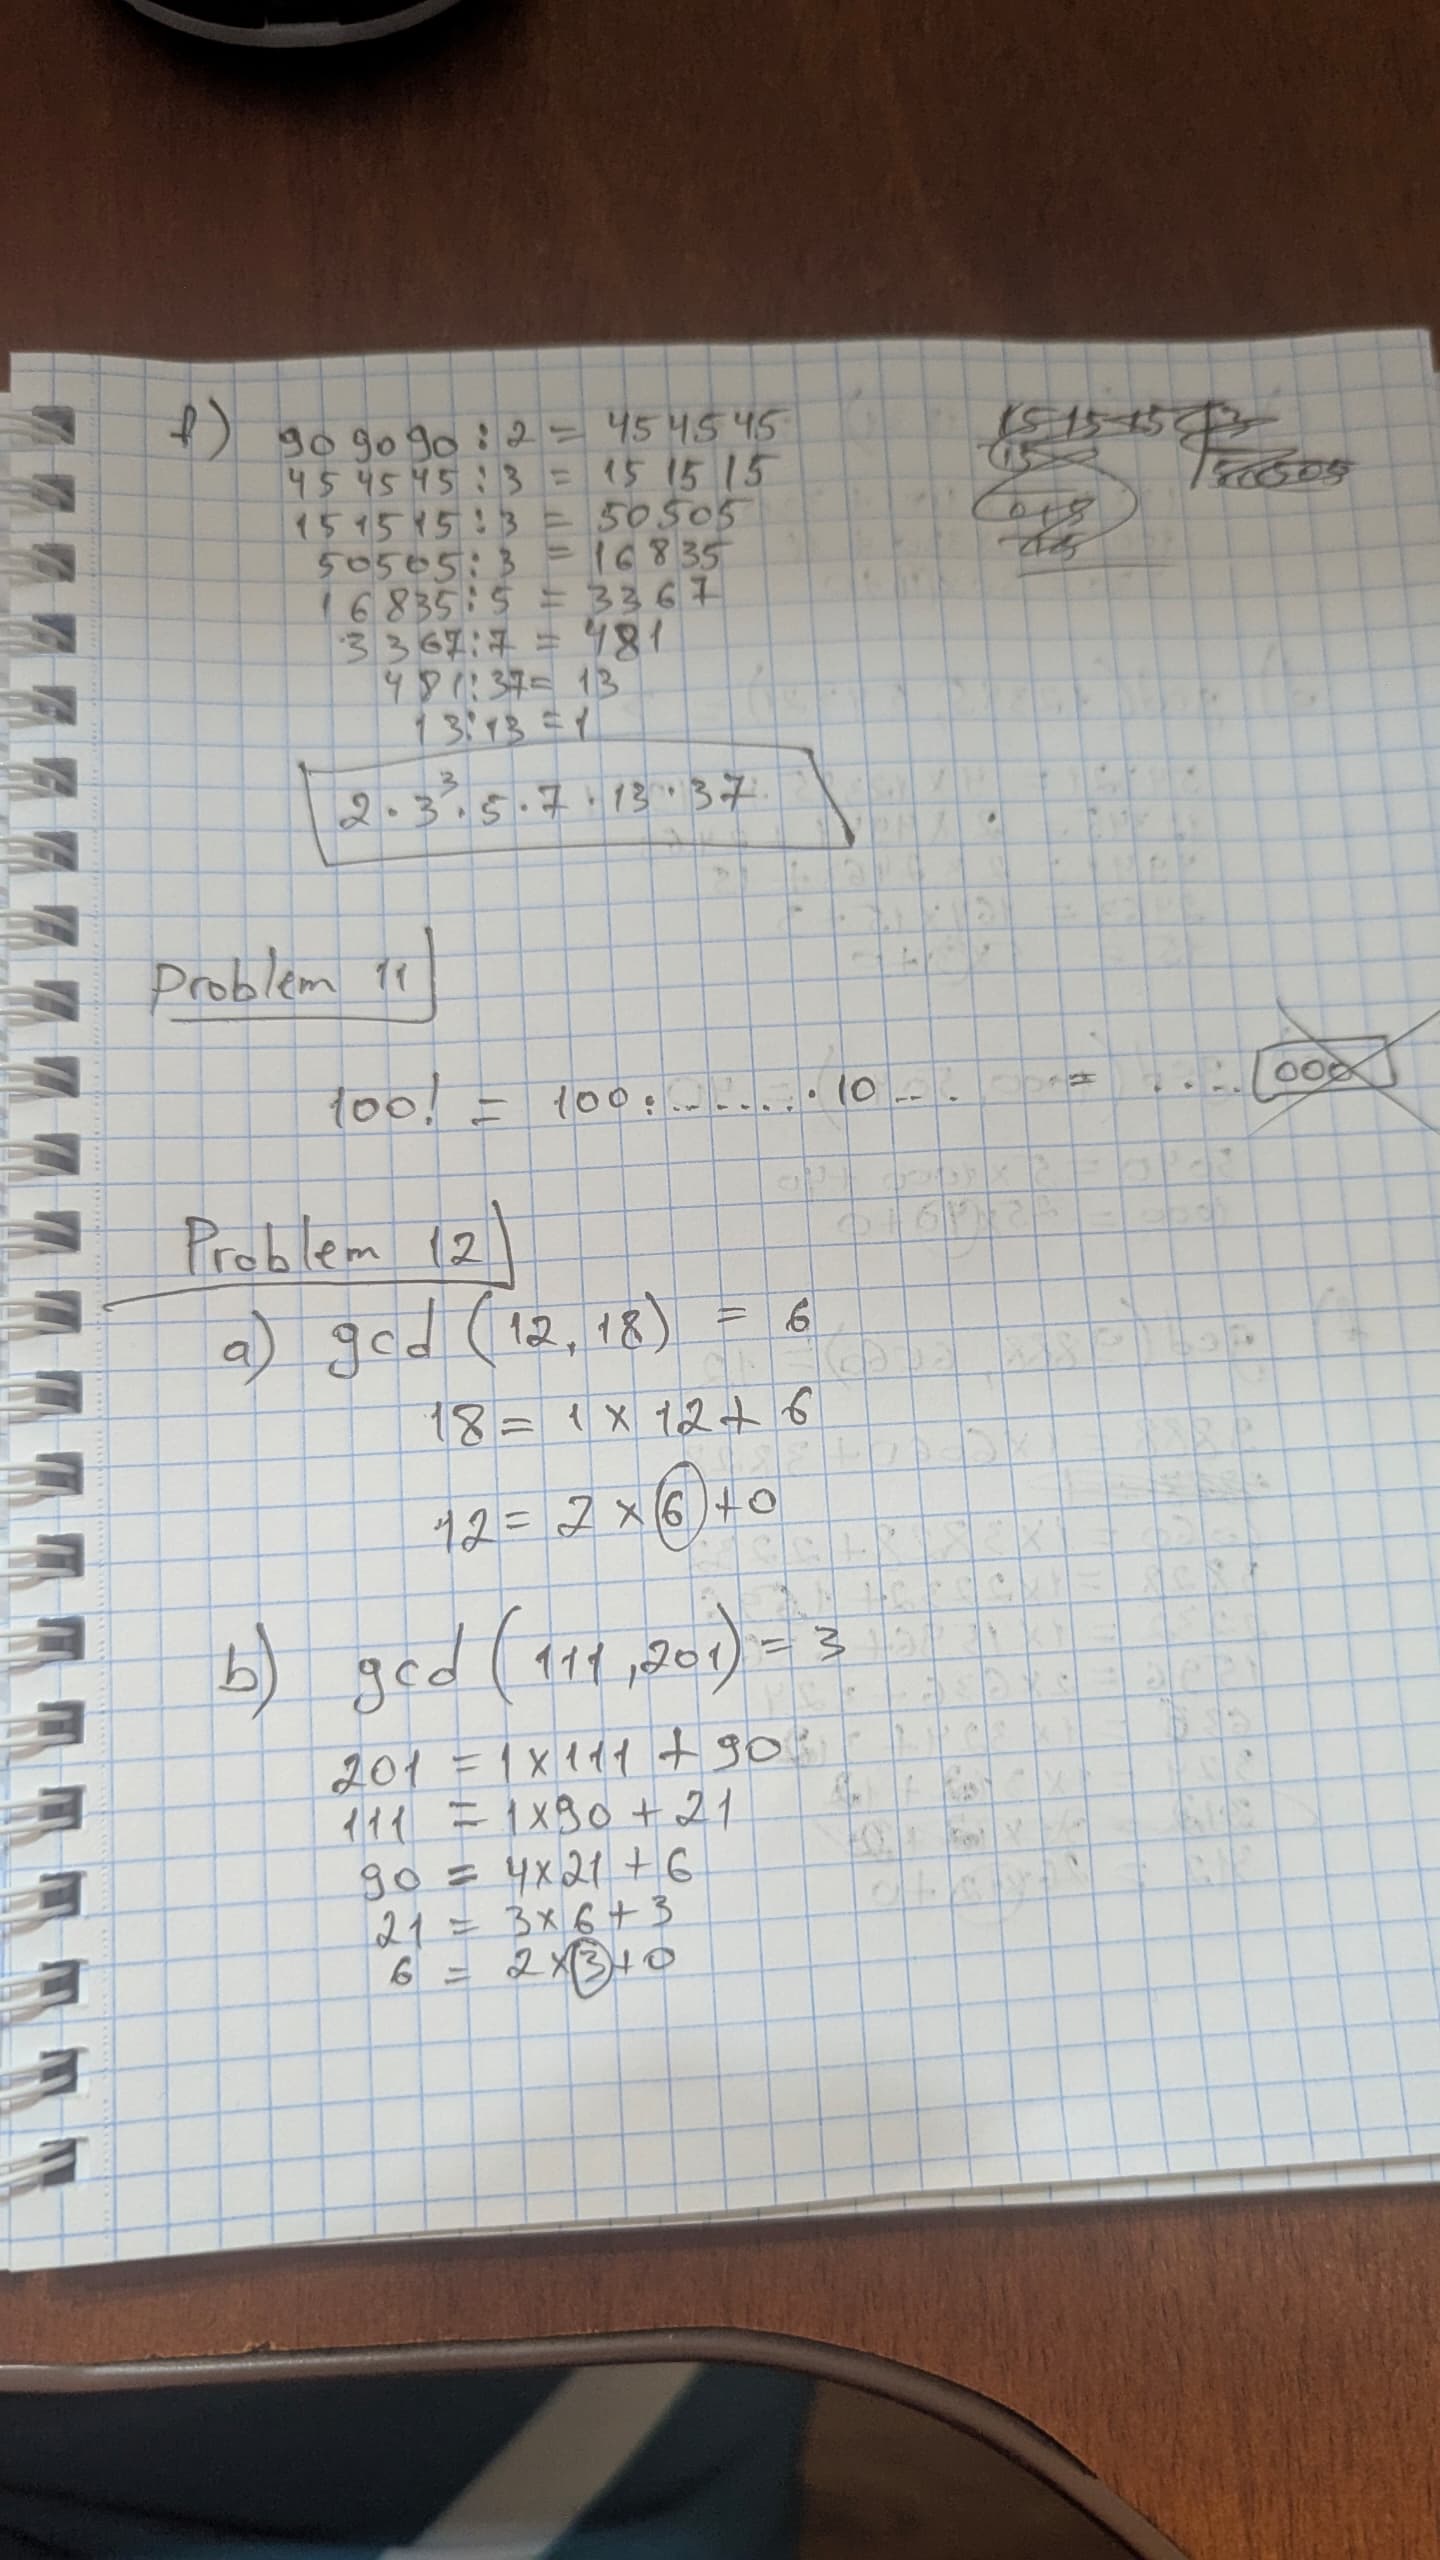 f) 90 90 90 : 2 = 45 45 45
45 45 45 : 3 = 15 15 15
15 15 15 : 3 = 50505
50505 : 3 = 16835
16835 : 5 = 3367
3367 : 7 = 481
481 : 37 = 13
13 : 13 = 1
2 · 3³ · 5 · 7 · 13 · 37
Problem 11
100! = 100 · ....... · 10 .... = .... 000
Problem 12
a) gcd (12, 18) = 6
18 = 1 x 12 + 6
12 = 2 x 6 + 0
b) gcd (111, 201) = 3
201 = 1 x 111 + 90
111 = 1 x 90 + 21
90 = 4 x 21 + 6
21 = 3 x 6 + 3
6 = 2 x 3 + 0